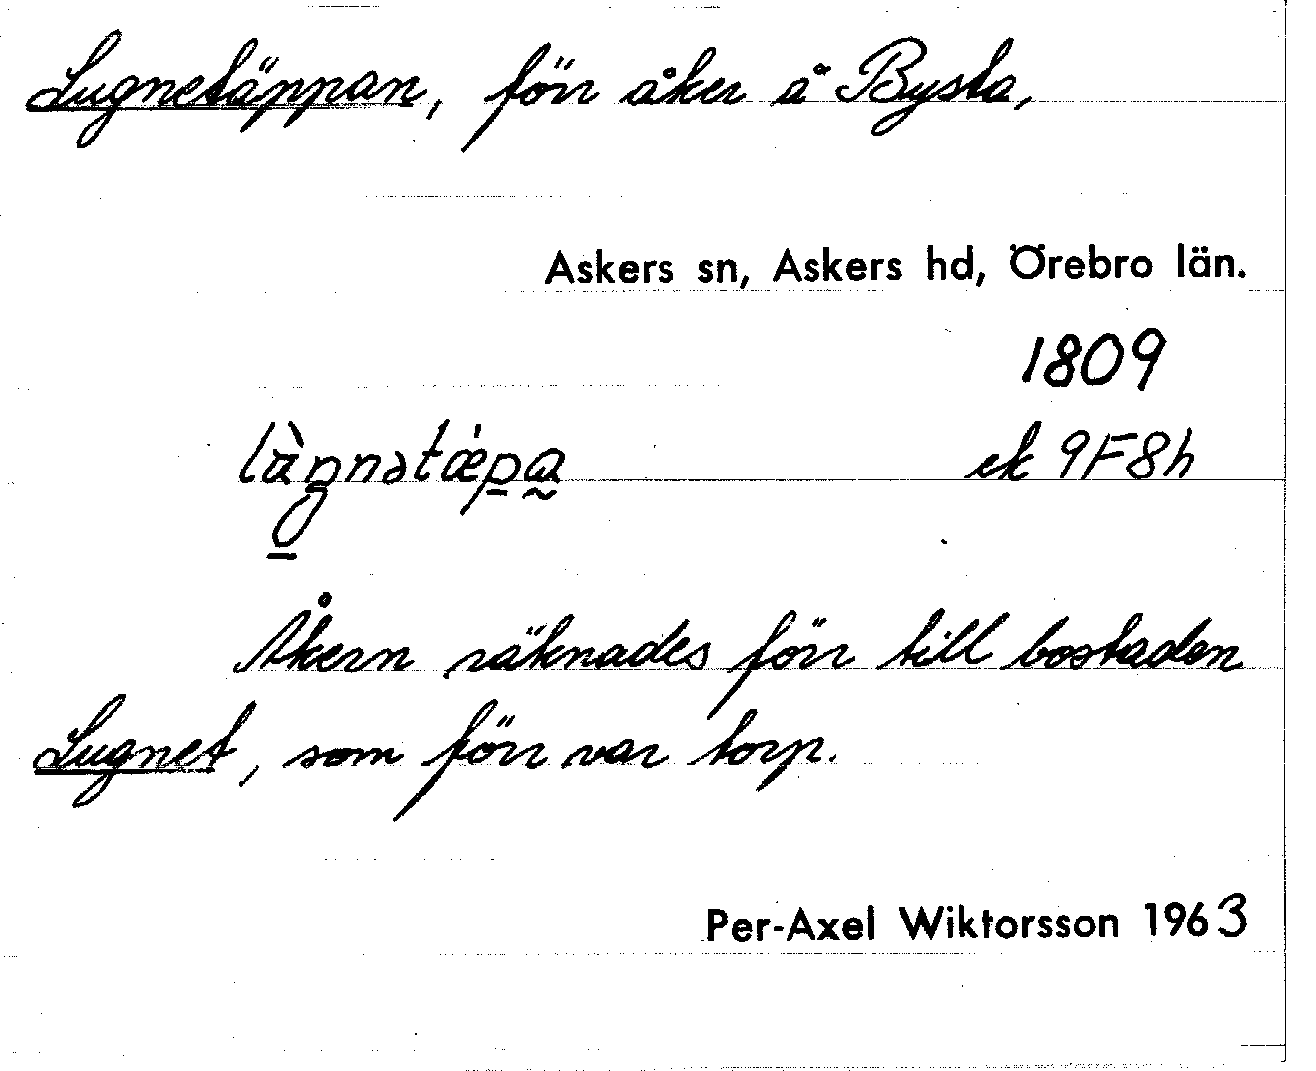 Lugnetäppan, förr åker å Bysta,
Askers sn, Askers hd, Örebro län.
1809
ek 9F8h
Åkern räknades förr till bostaden
Lugnet, som förr var torp.
Per-Axel Wiktorsson 1963